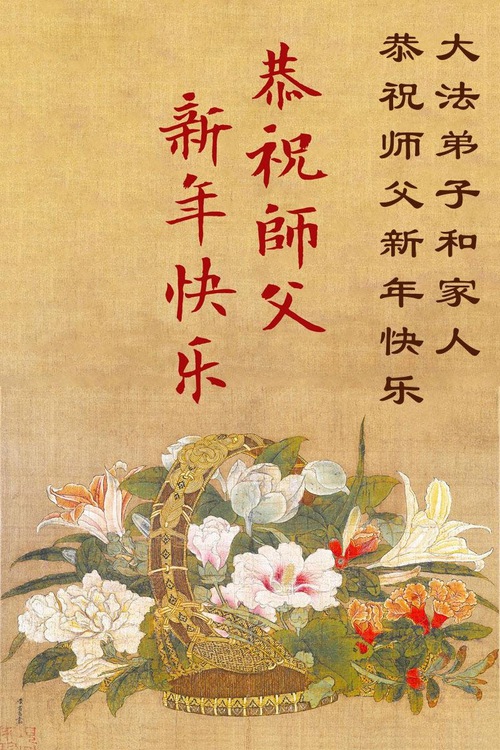 大法弟子和家人
恭祝师父新年快乐
恭祝師父
新年快乐